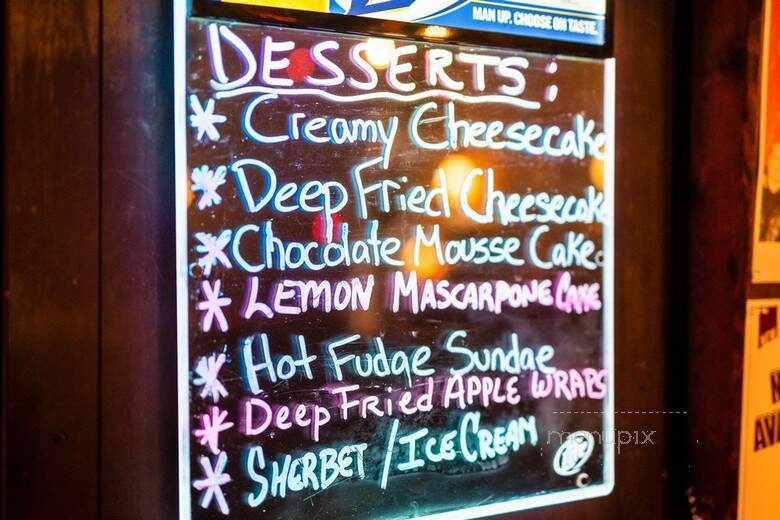 MAN UP. CHOOSE ON TASTE.
DESSERTS:
* Creamy Cheesecake
* Deep Fried Cheesecake
* Chocolate Mousse Cake
* LEMON MASCARPONE CAKE
* Hot Fudge Sundae
* Deep Fried APPLE WRAPS
* SHERBET / ICE CREAM
menupix